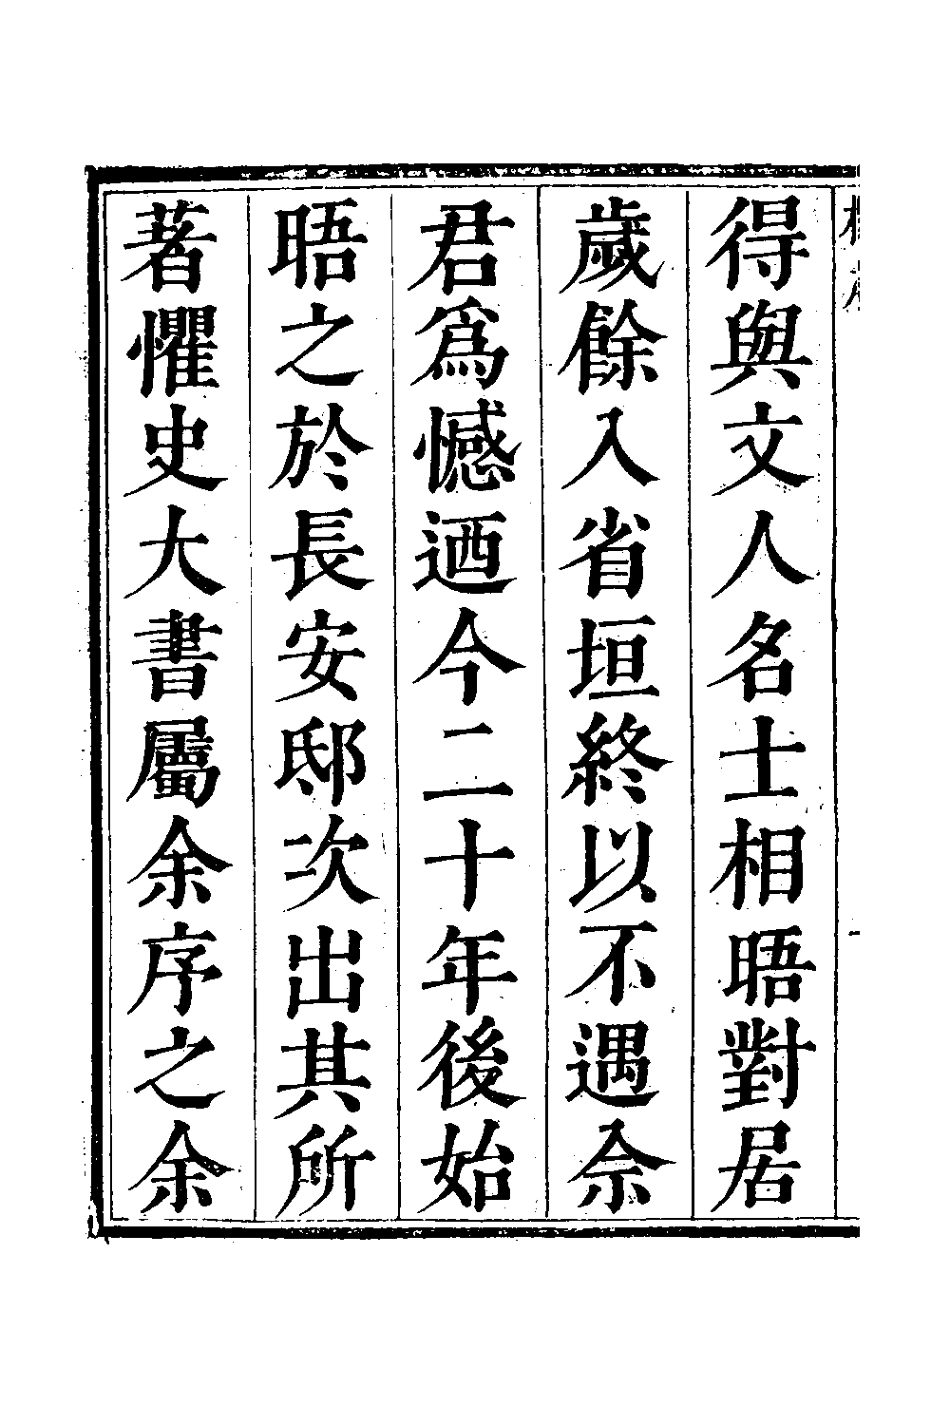 得與文人名士相晤對居
歲餘入省垣終以不遇佘
君爲憾迺今二十年後始
晤之於長安邸次出其所
著懼史大書屬余序之余